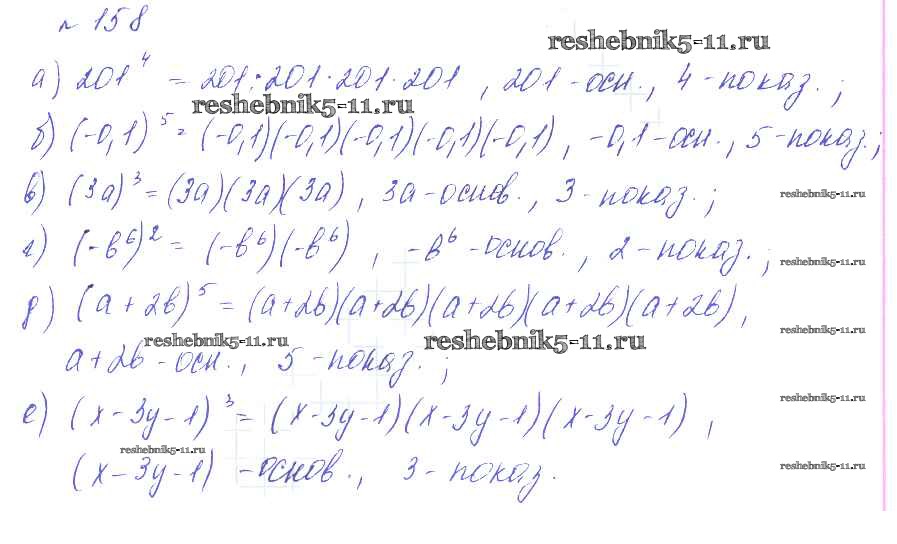 № 158
reshebnik5-11.ru
а) 201⁴ = 201·201·201·201, 201 - осн., 4 - показ.;
reshebnik5-11.ru
б) (-0,1)⁵ = (-0,1)(-0,1)(-0,1)(-0,1)(-0,1), -0,1 - осн., 5 - показ.;
в) (3a)³ = (3a)(3a)(3a), 3a - основ., 3 - показ.;
reshebnik5-11.ru
г) (-b⁶)² = (-b⁶)(-b⁶), -b⁶ - основ., 2 - показ.;
reshebnik5-11.ru
д) (a + 2b)⁵ = (a+2b)(a+2b)(a+2b)(a+2b)(a+2b),
reshebnik5-11.ru
reshebnik5-11.ru
reshebnik5-11.ru
a+2b - осн., 5 - показ.;
reshebnik5-11.ru
е) (x-3y-1)³ = (x-3y-1)(x-3y-1)(x-3y-1),
reshebnik5-11.ru
(x-3y-1) - основ., 3 - показ.
reshebnik5-11.ru